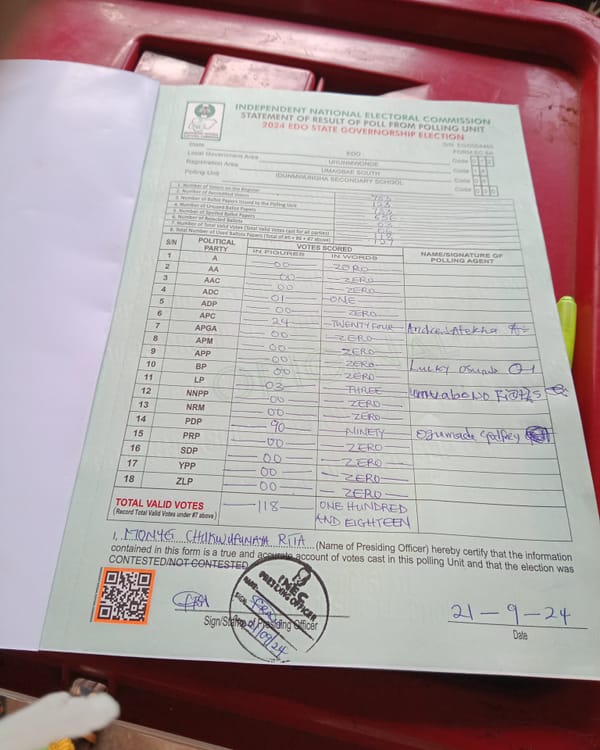 INDEPENDENT NATIONAL ELECTORAL COMMISSION
STATEMENT OF RESULT OF POLL FROM POLLING UNIT
2024 EDO STATE GOVERNORSHIP ELECTION
FORM EC 8A
State EDO Code
Local Government Area UHUNMWONDE Code
Registration Area UMAGBAE SOUTH Code
Polling Unit IDUNMWUNGHA SECONDARY SCHOOL Code
1. Number of Voters on the Register
2. Number of Accredited Voters
3. Number of Ballot Papers Issued to the Polling Unit
4. Number of Unused Ballot Papers
5. Number of Spoiled Ballot Papers
6. Number of Rejected Ballots
7. Number of Total Valid Votes (Total Valid Votes cast for all parties) 118
8. Total Number of Used Ballots Papers (Total of #5 + #6 + #7 above)
S/N POLITICAL PARTY VOTES SCORED NAME/SIGNATURE OF POLLING AGENT
IN FIGURES IN WORDS
1 A 00 ZERO
2 AA 00 ZERO
3 AAC 00 ZERO
4 ADC 01 ONE
5 ADP 00 ZERO
6 APC 24 TWENTY FOUR
7 APGA 00 ZERO
8 APM 00 ZERO
9 APP 00 ZERO
10 BP 00 ZERO
11 LP 03 THREE
12 NNPP 00 ZERO
13 NRM 00 ZERO
14 PDP 90 NINETY
15 PRP 00 ZERO
16 SDP 00 ZERO
17 YPP 00 ZERO
18 ZLP 00 ZERO
TOTAL VALID VOTES 118 ONE HUNDRED
(Record Total Valid Votes under #7 above) AND EIGHTEEN
I, RITA (Name of Presiding Officer) hereby certify that the information
contained in this form is a true and accurate account of votes cast in this polling Unit and that the election was
CONTESTED/NOT CONTESTED
INEC
PRESIDING OFFICER
NAME:
SIGN:
21/09/24
Sign/Stamp of Presiding Officer
21-9-24
Date